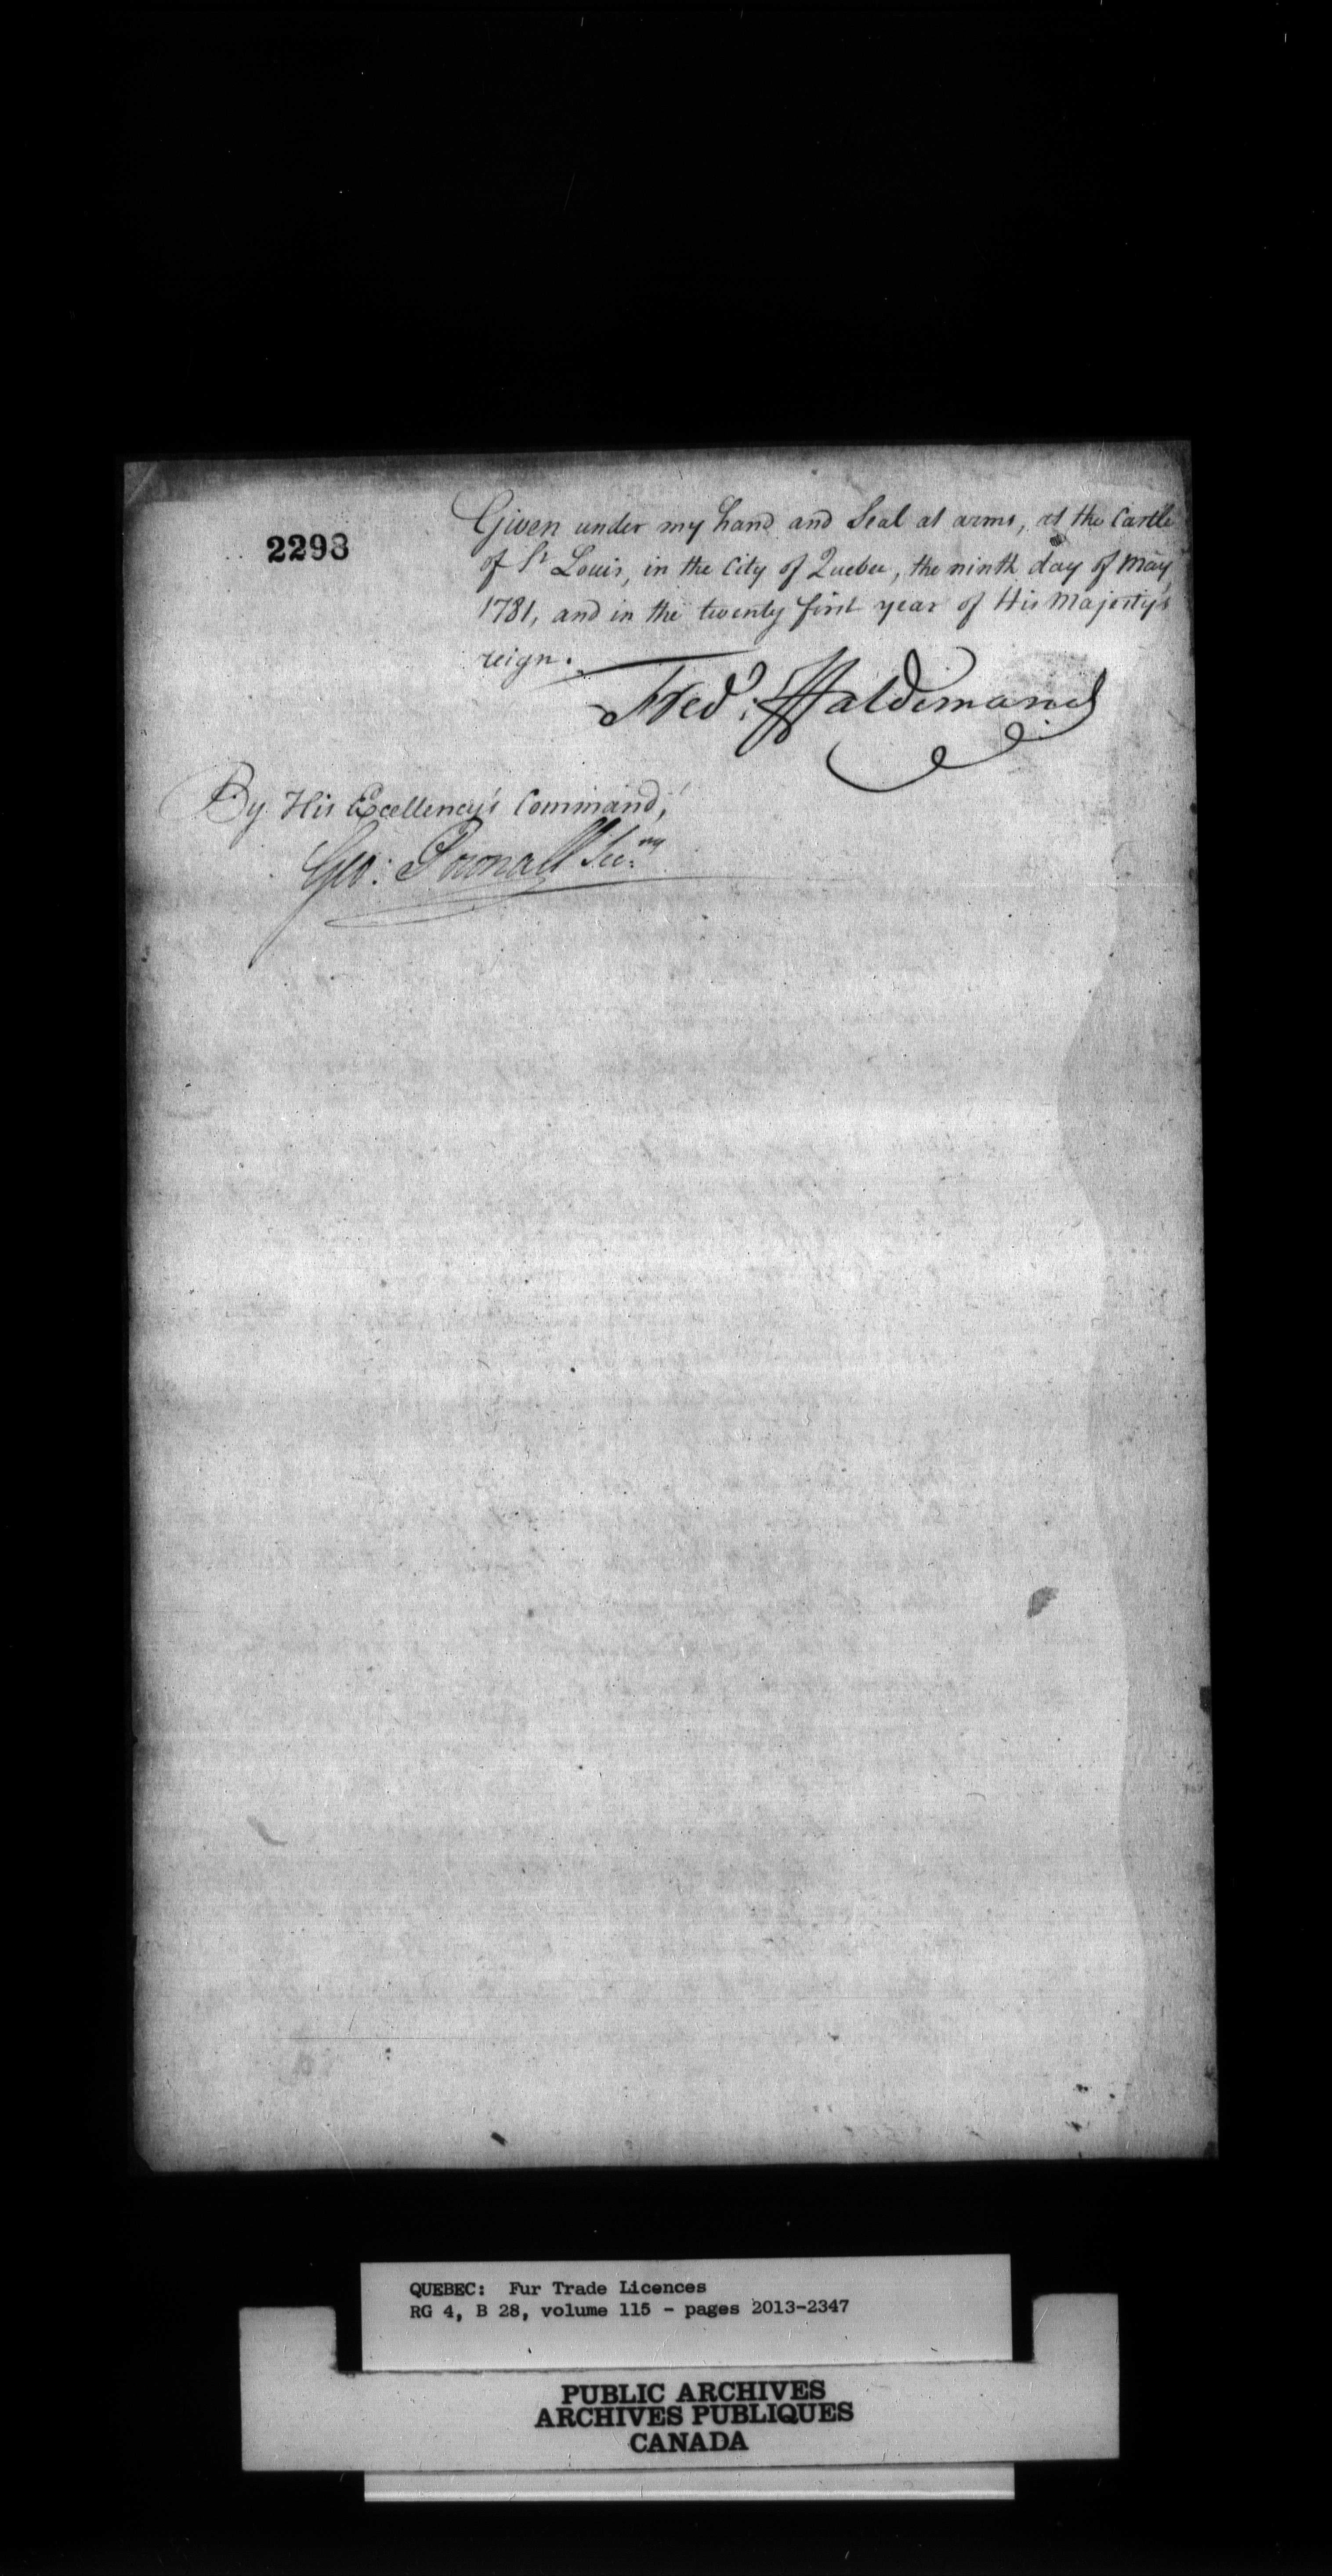 2298
Given under my hand and Seal at arms, at the Castle
of St Louis, in the City of Quebec, the ninth day of May,
1781, and in the twenty first year of His Majesty's
reign.
Fred: Haldimand
By His Excellency's Command,
Geo: Pownall Sec:ry
QUEBEC: Fur Trade Licences
RG 4, B 28, volume 115 - pages 2013-2347
PUBLIC ARCHIVES
ARCHIVES PUBLIQUES
CANADA